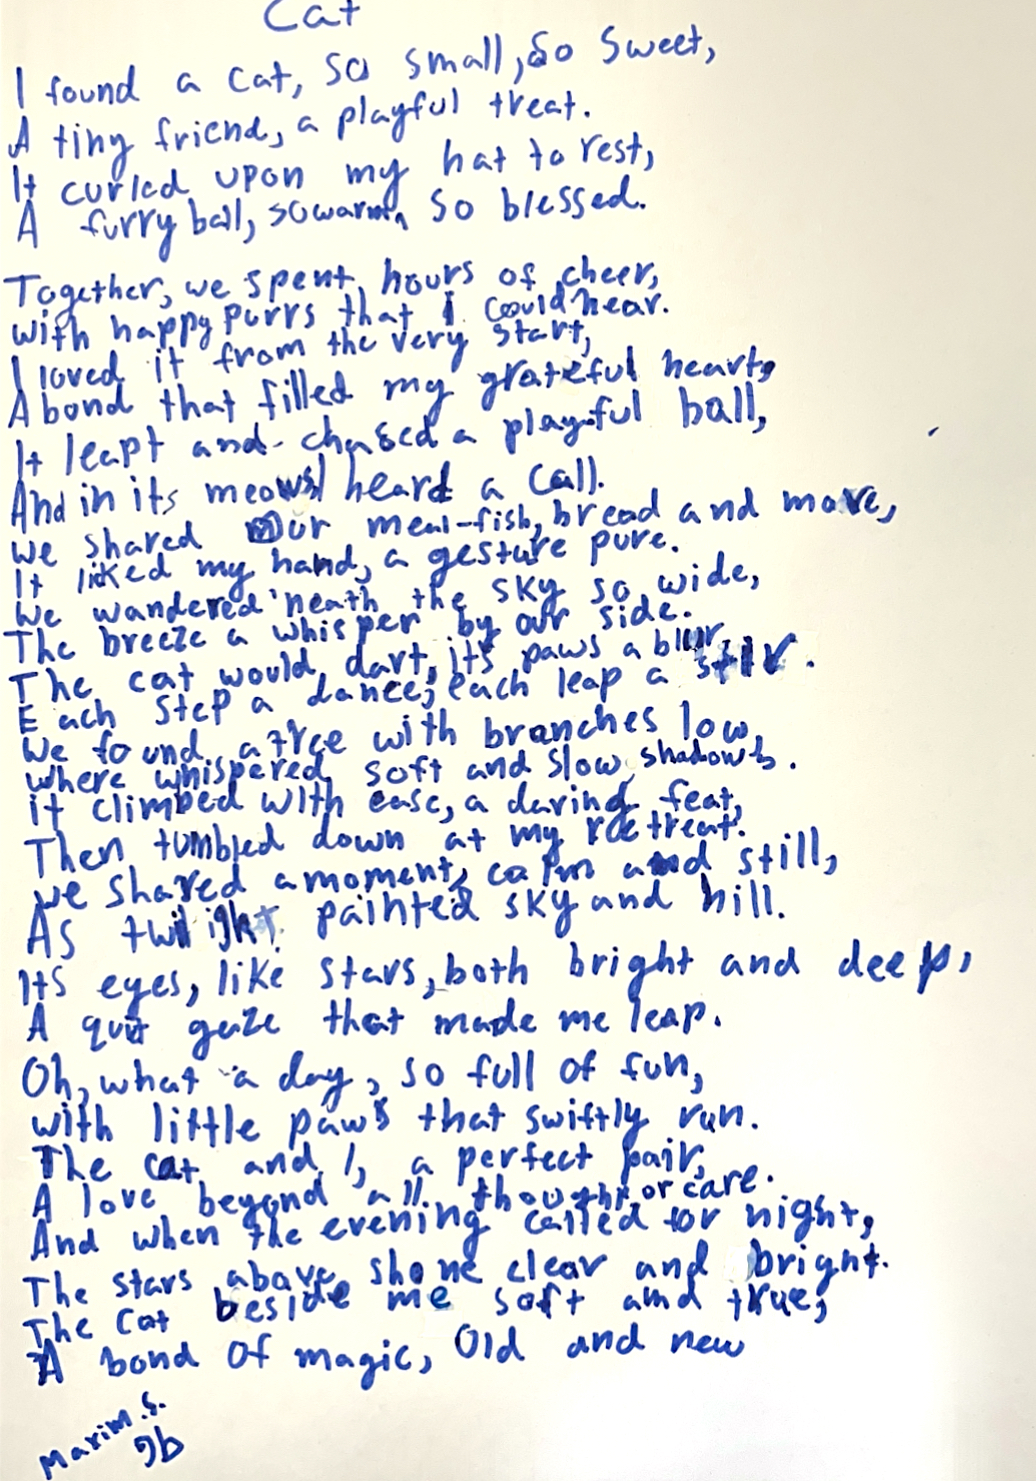 Cat
I found a cat, so small, so sweet,
A tiny friend, a playful treat.
It curled upon my hat to rest,
A furry ball, so warm, so blessed.
Together, we spent hours of cheer,
with happy purrs that I could hear.
I loved it from the very start,
A bond that filled my grateful heart,
It leapt and chased a playful ball,
And in its meows I heard a call.
we shared our meal-fish, bread and more,
It licked my hand, a gesture pure.
We wandered 'neath the sky so wide,
The breeze a whisper by our side.
The cat would dart, its paws a blur,
Each step a dance, each leap a stir.
We found a tree with branches low,
where whispered soft and slow shadows.
it climbed with ease, a daring feat,
Then tumbled down at my retreat.
we shared a moment, calm and still,
As twilight painted sky and hill.
Its eyes, like stars, both bright and deep,
A quit gaze that made me leap.
Oh, what a day, so full of fun,
with little paws that swiftly run.
The cat and I, a perfect pair,
A love beyond all thought or care.
And when the evening called for night,
The stars above shone clear and bright.
The cat beside me soft and true,
A bond of magic, Old and new
Maxim.S.
9b